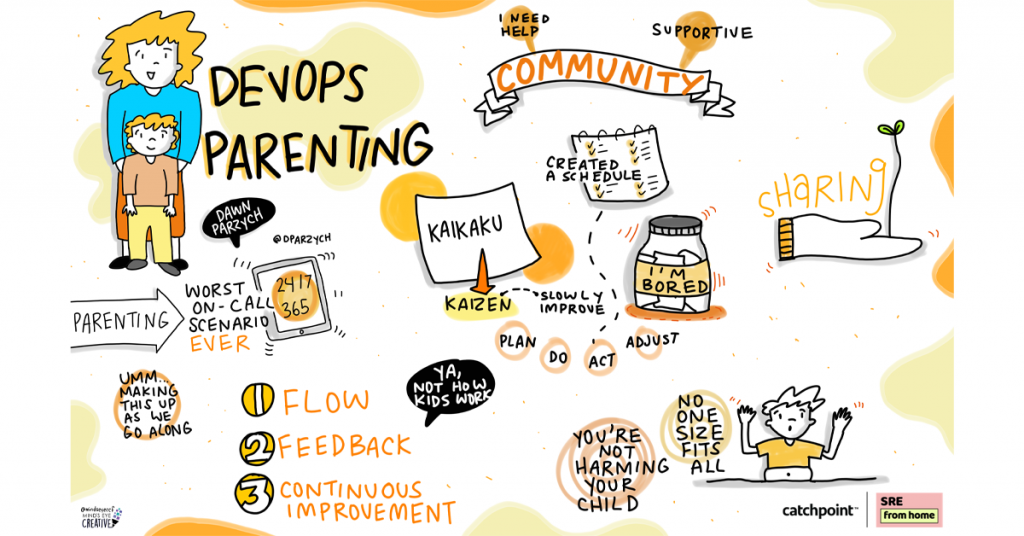 DEVOPS
PARENTING
DAWN
PARZYCH
@DPARZYCH
PARENTING
WORST
ON-CALL
SCENARIO
EVER
24/7
365
UMM...
MAKING
THIS UP
AS WE
GO ALONG
1 FLOW
2 FEEDBACK
3 CONTINUOUS
IMPROVEMENT
I NEED
HELP
SUPPORTIVE
COMMUNITY
CREATED
A SCHEDULE
KAIKAKU
KAIZEN
SLOWLY
IMPROVE
I'M
BORED
PLAN
DO
ACT
ADJUST
YA,
NOT HOW
KIDS WORK
SHARING
YOU'RE
NOT
HARMING
YOUR
CHILD
NO
ONE
SIZE
FITS
ALL
MINDS EYE
CREATIVE
catchpoint™
SRE
from home